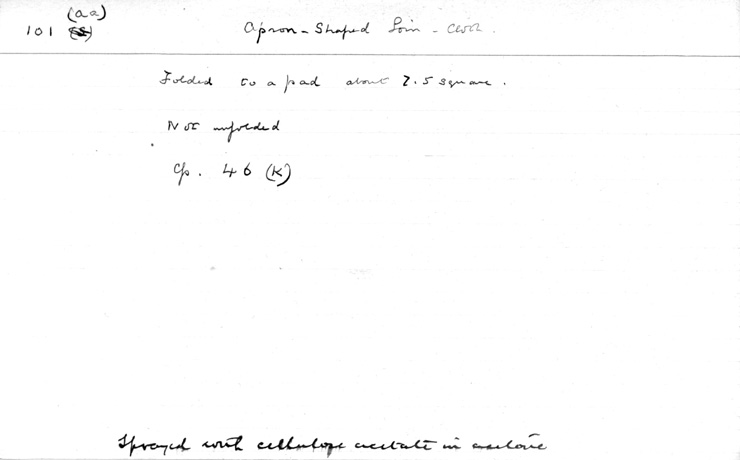 (aa)
101
Apron-Shaped Loin-cloth.
Folded to a pad about 7.5 square.
Not unfolded
Cp. 46 (K)
Sprayed with cellulose acetate in acetone